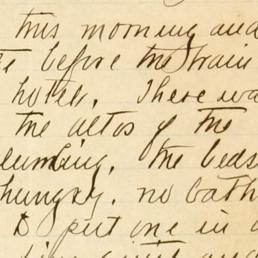 this morning and
before the train
hotel. There wa
the altos of the
the beds
hungry. no bath
to put one in